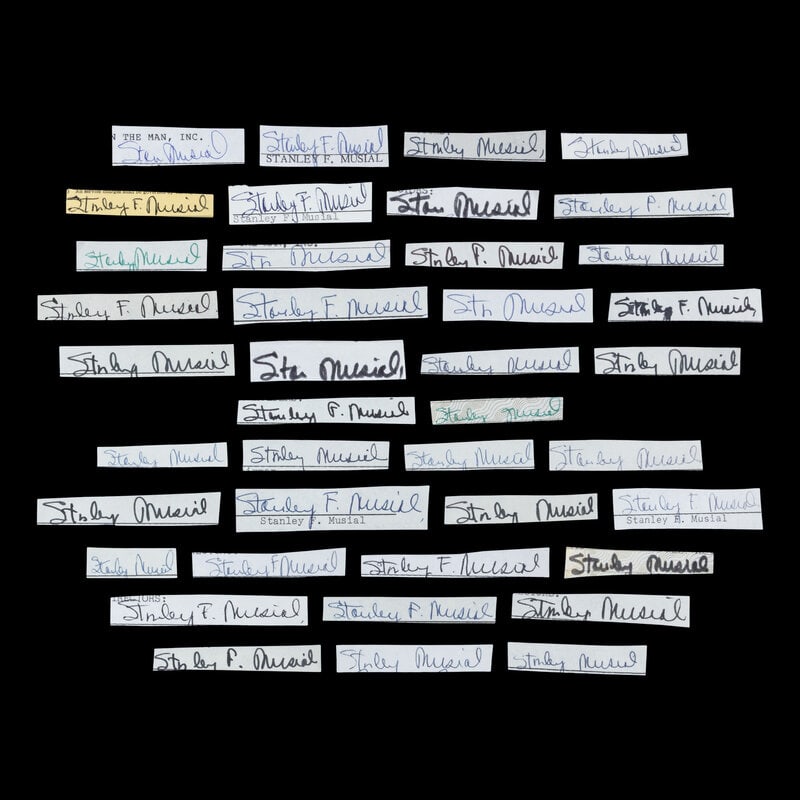 THE MAN, INC.
Stan Musial
Stanley F. Musial
STANLEY F. MUSIAL
Stanley Musial,
Stanley Musial
Stanley F. Musial
Stanley F. Musial
Stanley F. Musial
Stan Musial
Stanley F. Musial
Stanley Musial
Stn Musial
Stanley F. Musial
Stanley Musial
Stanley F. Musial
Stanley F. Musial
Stn Musial
Stanley F. Musial
Stanley Musial
Stan Musial
Stanley Musial
Stanley Musial
Stanley F. Musial
Stanley Musial
Stanley Musial
Stanley Musial
Stanley Musial
Stanley Musial
Stanley Musial
Stanley F. Musial
Stanley F. Musial
Stanley Musial
Stanley F. Musial
Stanley H. Musial
Stanley Musial
Stanley F Musial
Stanley F. Musial
Stanley Musial
Stanley F. Musial
Stanley F. Musial
Stanley Musial
Stanley F. Musial
Stanley Musial
Stanley Musial